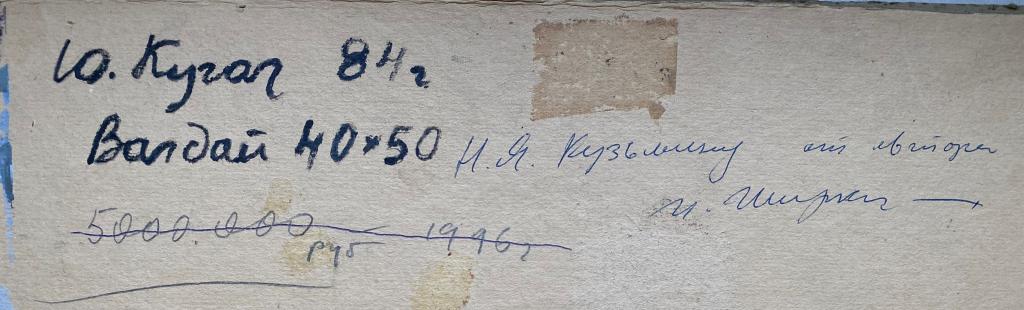 Ю. Кугач 84г
Валдай 40×50
Н. Я. Кузьмину от автора
5000.000 руб 1996г